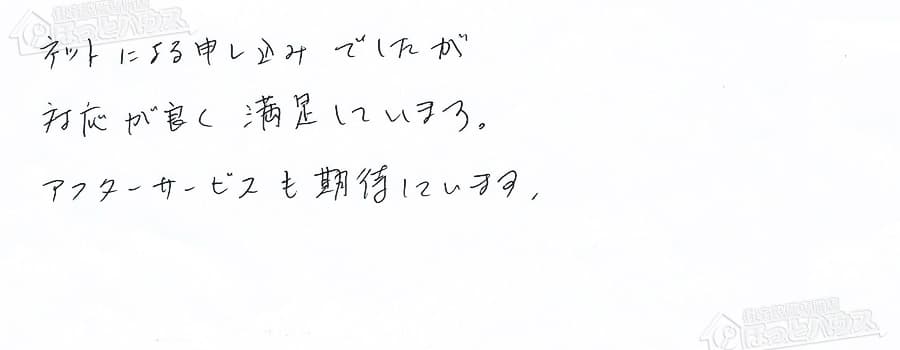 ほっとハウス
ネットによる申し込みでしたが
対応が良く満足しています。
アフターサービスも期待しています。
ほっとハウス